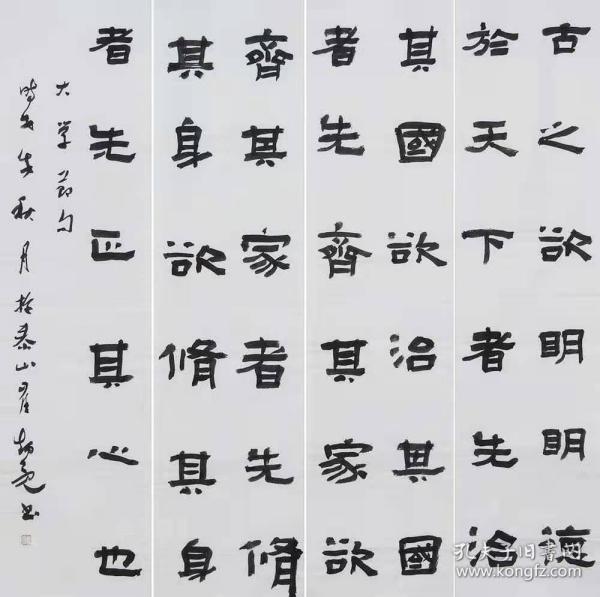 古之欲明明德
於天下者先治
其國欲治其國
者先齊其家欲
齊其家者先脩
其身欲脩其身
者先正其心也
大学节句
秋月於泰山書
孔夫子旧書网
www.kongfz.com